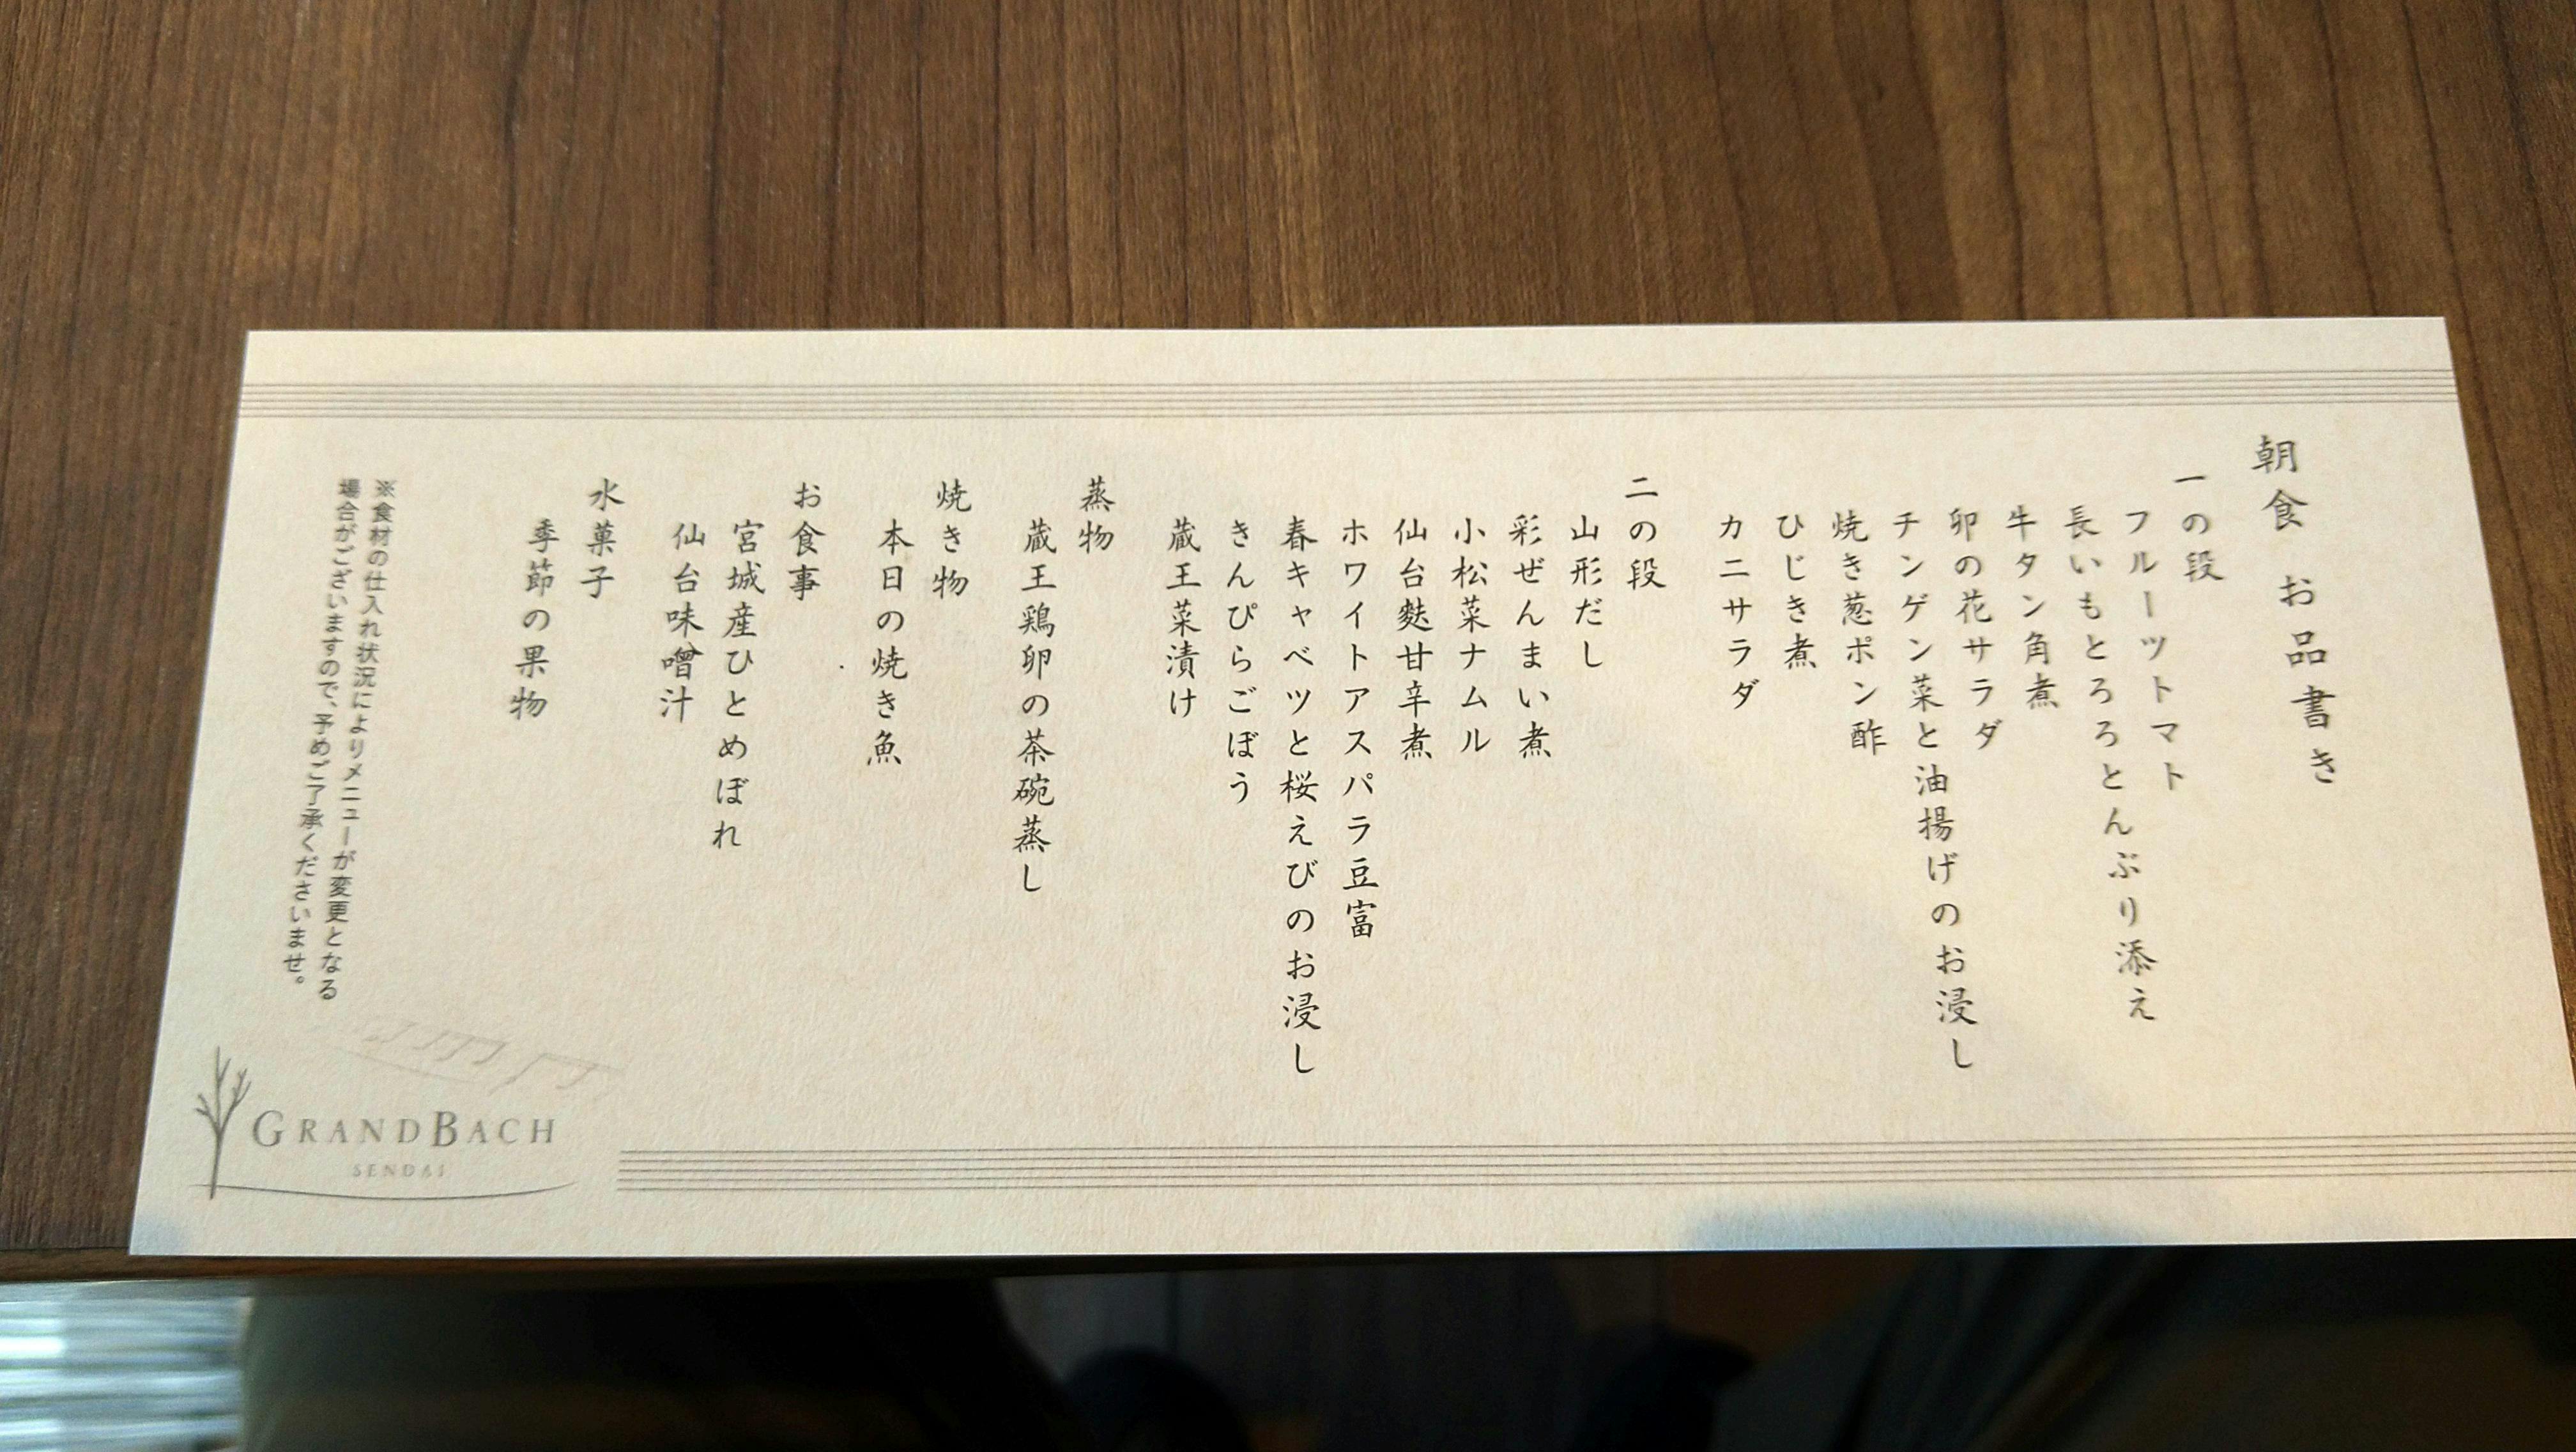 朝食 お品書き
一の段
フルーツトマト
長いもとろろとんぶり添え
牛タン角煮
卯の花サラダ
チンゲン菜と油揚げのお浸し
焼き葱ポン酢
ひじき煮
カニサラダ
二の段
山形だし
彩ぜんまい煮
小松菜ナムル
仙台麩甘辛煮
ホワイトアスパラ豆富
春キャベツと桜えびのお浸し
きんぴらごぼう
蔵王菜漬け
蒸物
蔵王鶏卵の茶碗蒸し
焼き物
本日の焼き魚
お食事
宮城産ひとめぼれ
仙台味噌汁
水菓子
季節の果物
※食材の仕入れ状況によりメニューが変更となる
場合がございますので、予めご了承くださいませ。
GRANDBACH
SENDAI